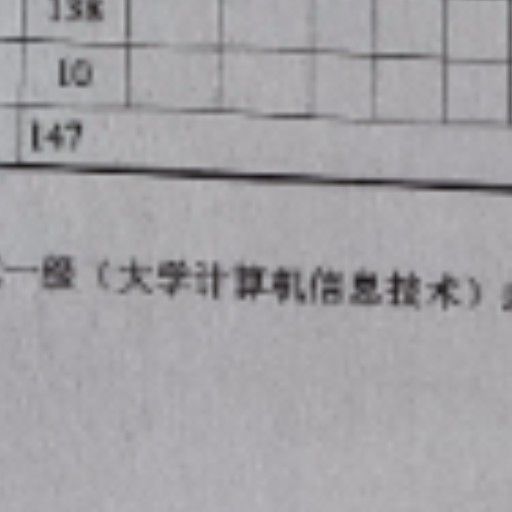 138
10
147
一级（大学计算机信息技术）